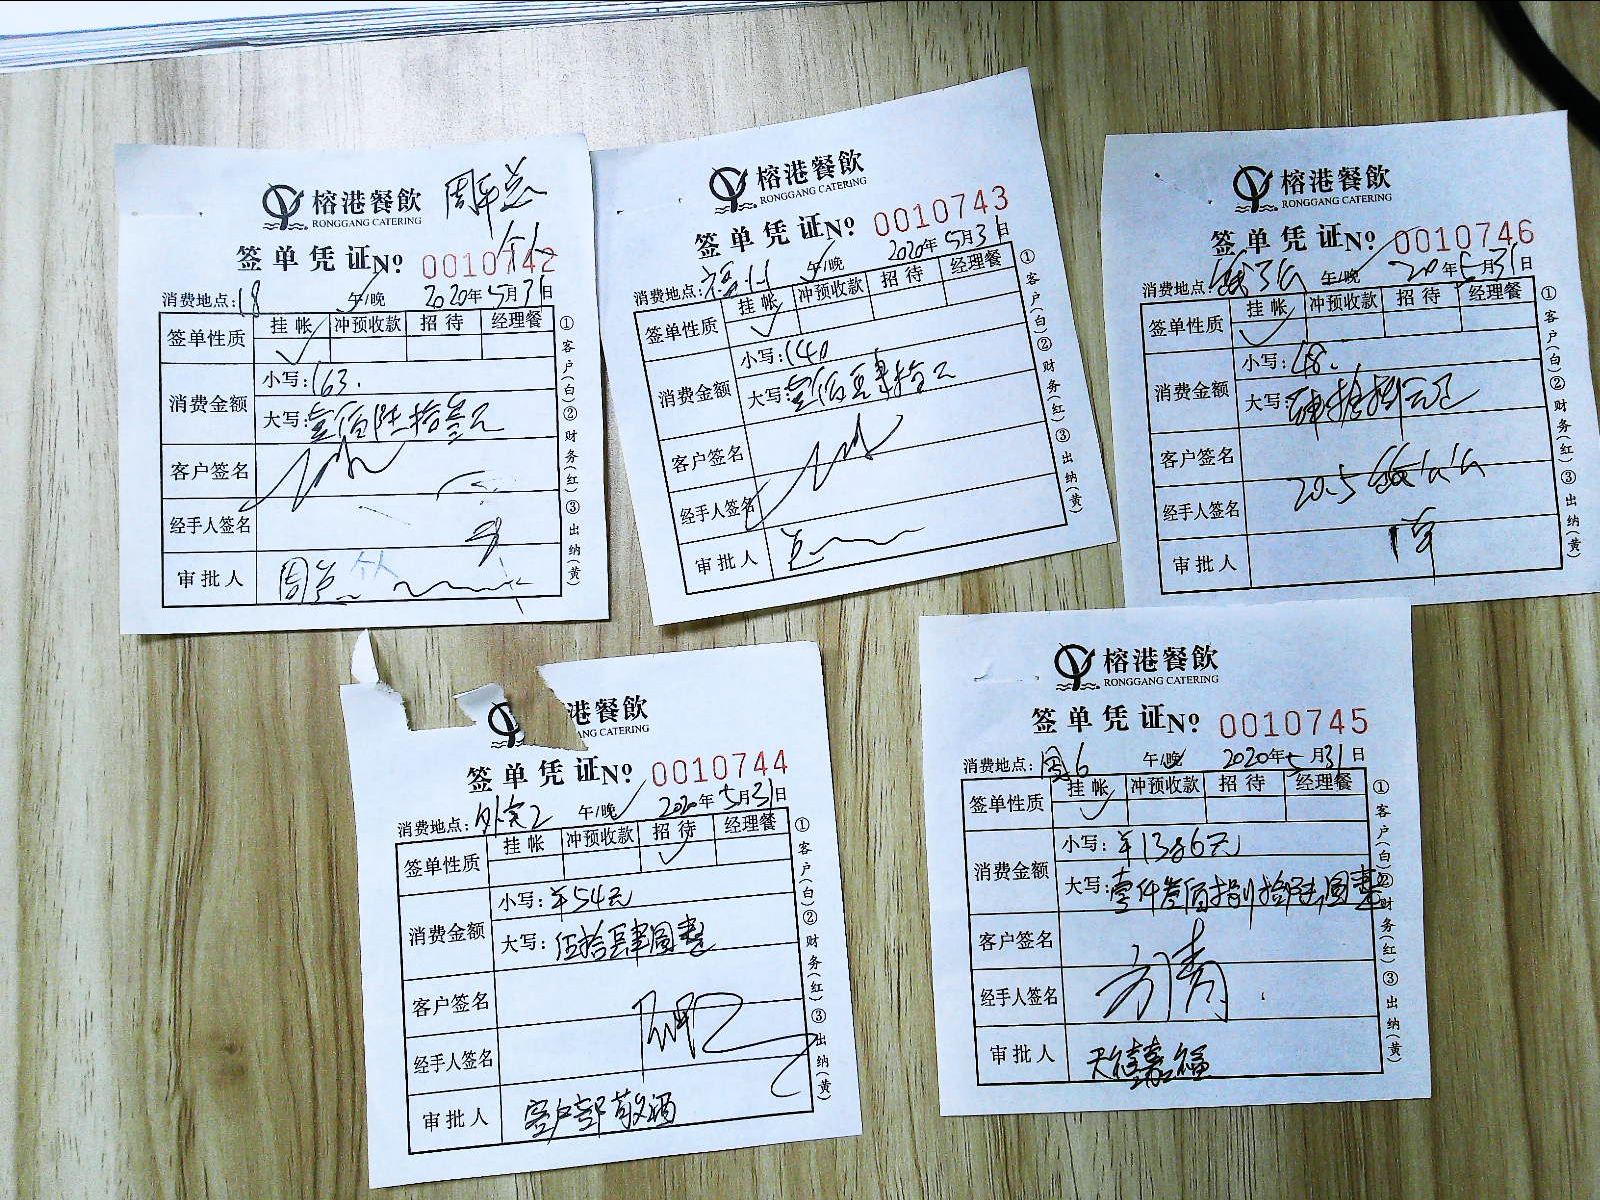 周平总
个人
榕港餐飲
RONGGANG CATERING
签单凭证No 0010742
消费地点: 18 午/晚 2020年5月31日
签单性质 挂帐 冲预收款 招待 经理餐
消费金额 小写: 163.
大写: 壹佰陆拾叁元
客户签名
经手人签名
审批人 周总 个人
①客户(白)②财务(红)③出纳(黄)
榕港餐飲
RONGGANG CATERING
签单凭证No 0010743
消费地点: 午/晚 2020年5月31日
签单性质 挂帐 冲预收款 招待 经理餐
消费金额 小写: 140
大写: 壹佰肆拾元
客户签名
经手人签名
审批人
①客户(白)②财务(红)③出纳(黄)
榕港餐飲
RONGGANG CATERING
签单凭证No 0010746
消费地点: 午/晚 2020年5月31日
签单性质 挂帐 冲预收款 招待 经理餐
消费金额 小写: 48.
大写:
客户签名
经手人签名
审批人
①客户(白)②财务(红)③出纳(黄)
港餐飲
NG CATERING
签单凭证No 0010744
消费地点: 午/晚 2020年5月31日
签单性质 挂帐 冲预收款 招待 经理餐
消费金额 小写: ¥54元
大写: 伍拾肆圆整
客户签名
经手人签名
审批人 客户部敬酒
①客户(白)②财务(红)③出纳(黄)
榕港餐飲
RONGGANG CATERING
签单凭证No 0010745
消费地点: 午/晚 2020年5月31日
签单性质 挂帐 冲预收款 招待 经理餐
消费金额 小写: ¥1386元
大写: 壹仟叁佰捌拾陆圆整
客户签名
经手人签名 方青
审批人
①客户(白)②财务(红)③出纳(黄)